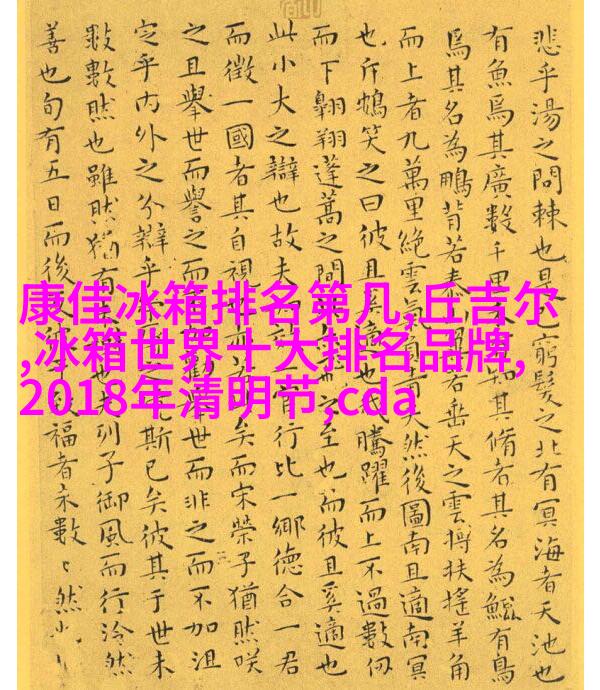 悲乎湯之問棘也是已窮髮之北有冥海者天池也
有魚焉其廣數千里未知其脩者其名為鯤有鳥
焉其名為鵬背若泰若垂天之雲摶扶搖羊角
而上者九萬里絕雲氣負青天然後圖南且適南冥
也斥鴳笑之曰彼且奚適也我騰躍而上不過數仞
而下翱翔蓬蒿之間之至也而彼且奚適也
此小大之辯也故夫知官行比一鄉德合一君
而徵一國者其自視也矣而宋榮子猶然咲
之且舉世而譽之而勸世而非之而不加沮
定乎內外之分辯乎斯已矣彼其于世未
數數然也雖然猶有未列子御風而行泠然
善也旬有五日而後反彼致福者未數々然也
康佳冰箱排名第几,丘吉尔
,冰箱世界十大排名品牌,
2018年清明节,cda